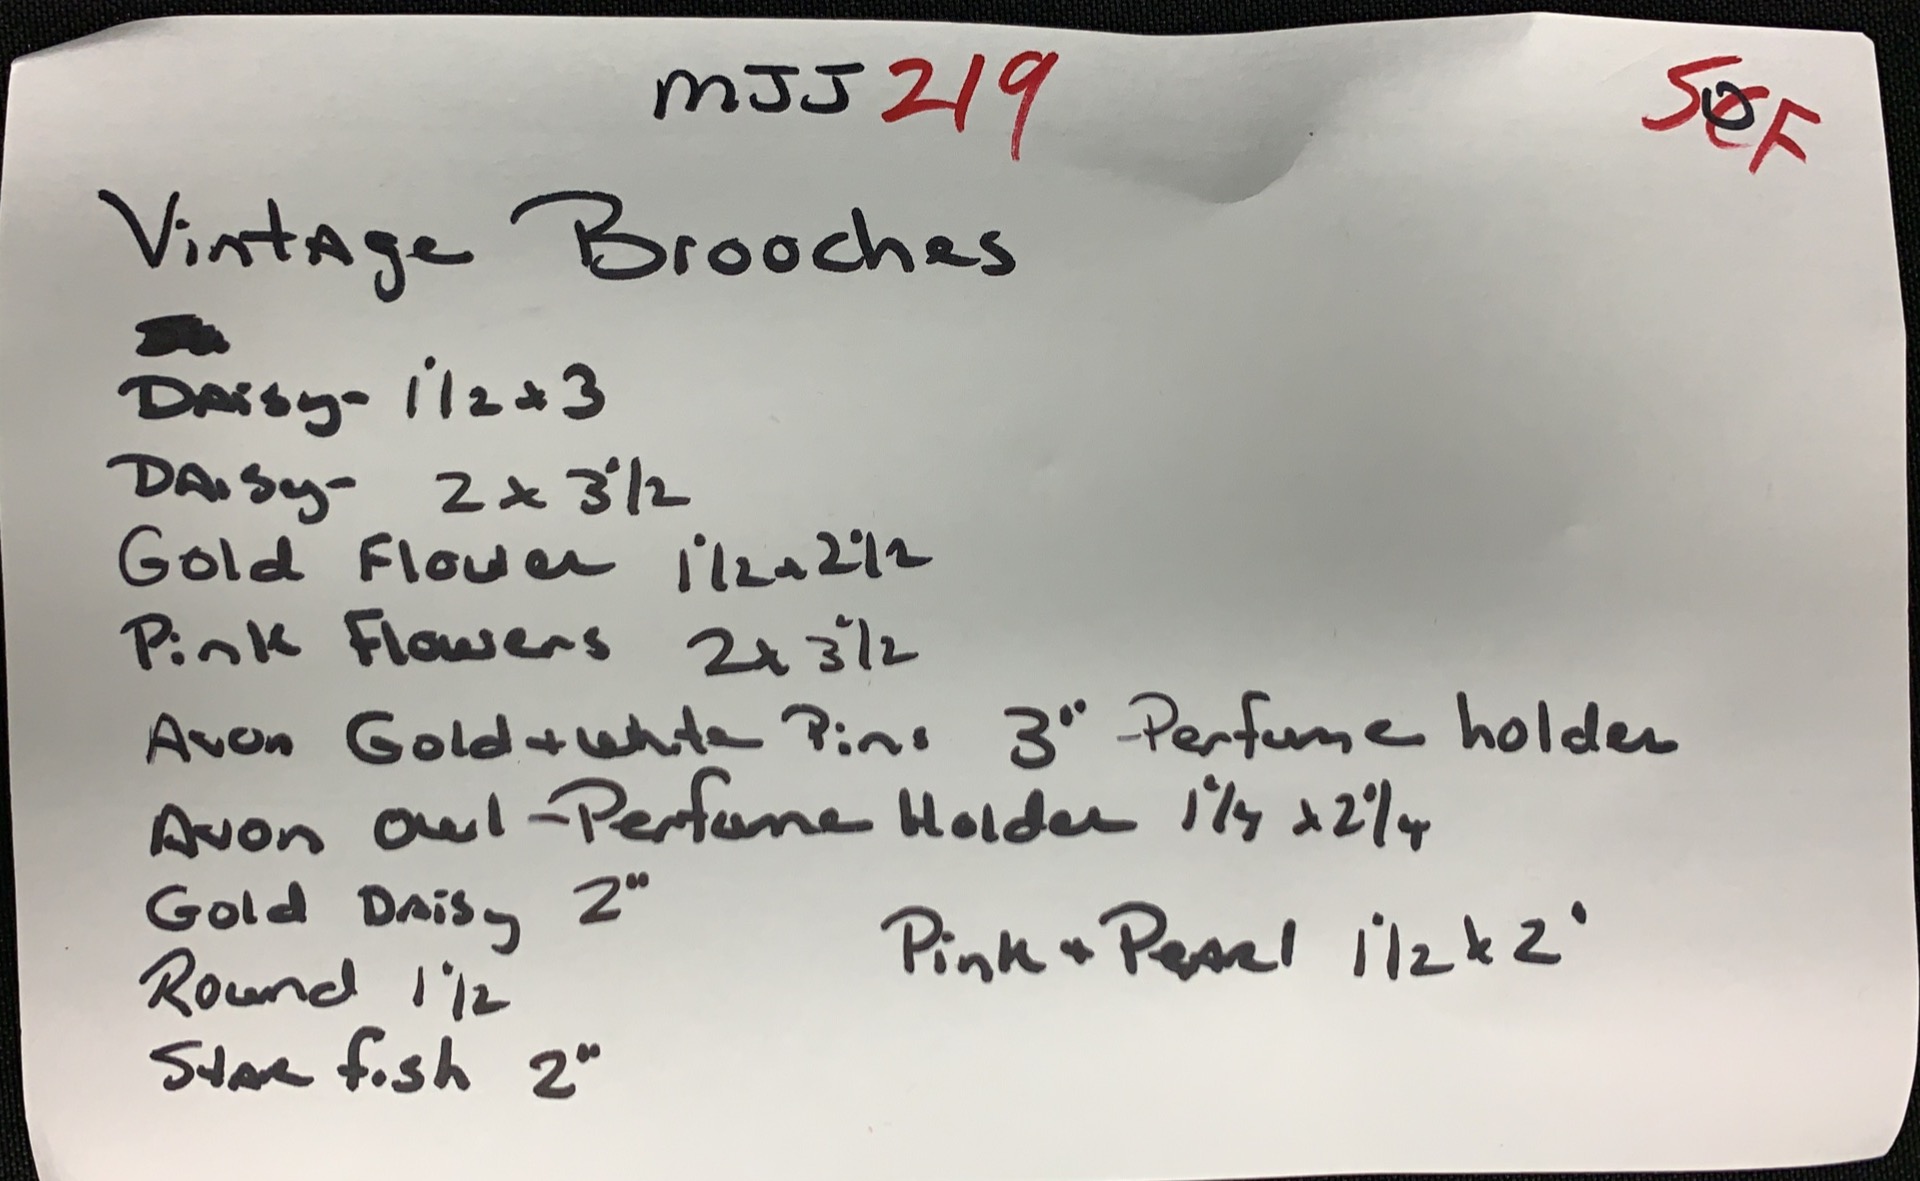 MJJ219
Vintage Brooches
Daisy- 1 1/2 x 3
Daisy- 2 x 3 1/2
Gold Flower 1 1/2 x 2 1/2
Pink Flowers 2 x 3 1/2
Avon Gold + white Pins 3" -Perfume holder
Avon owl -Perfume Holder 1 1/4 x 2 1/4
Gold Daisy 2"
Pink + Pearl 1 1/2 x 2"
Round 1 1/2
Star fish 2"